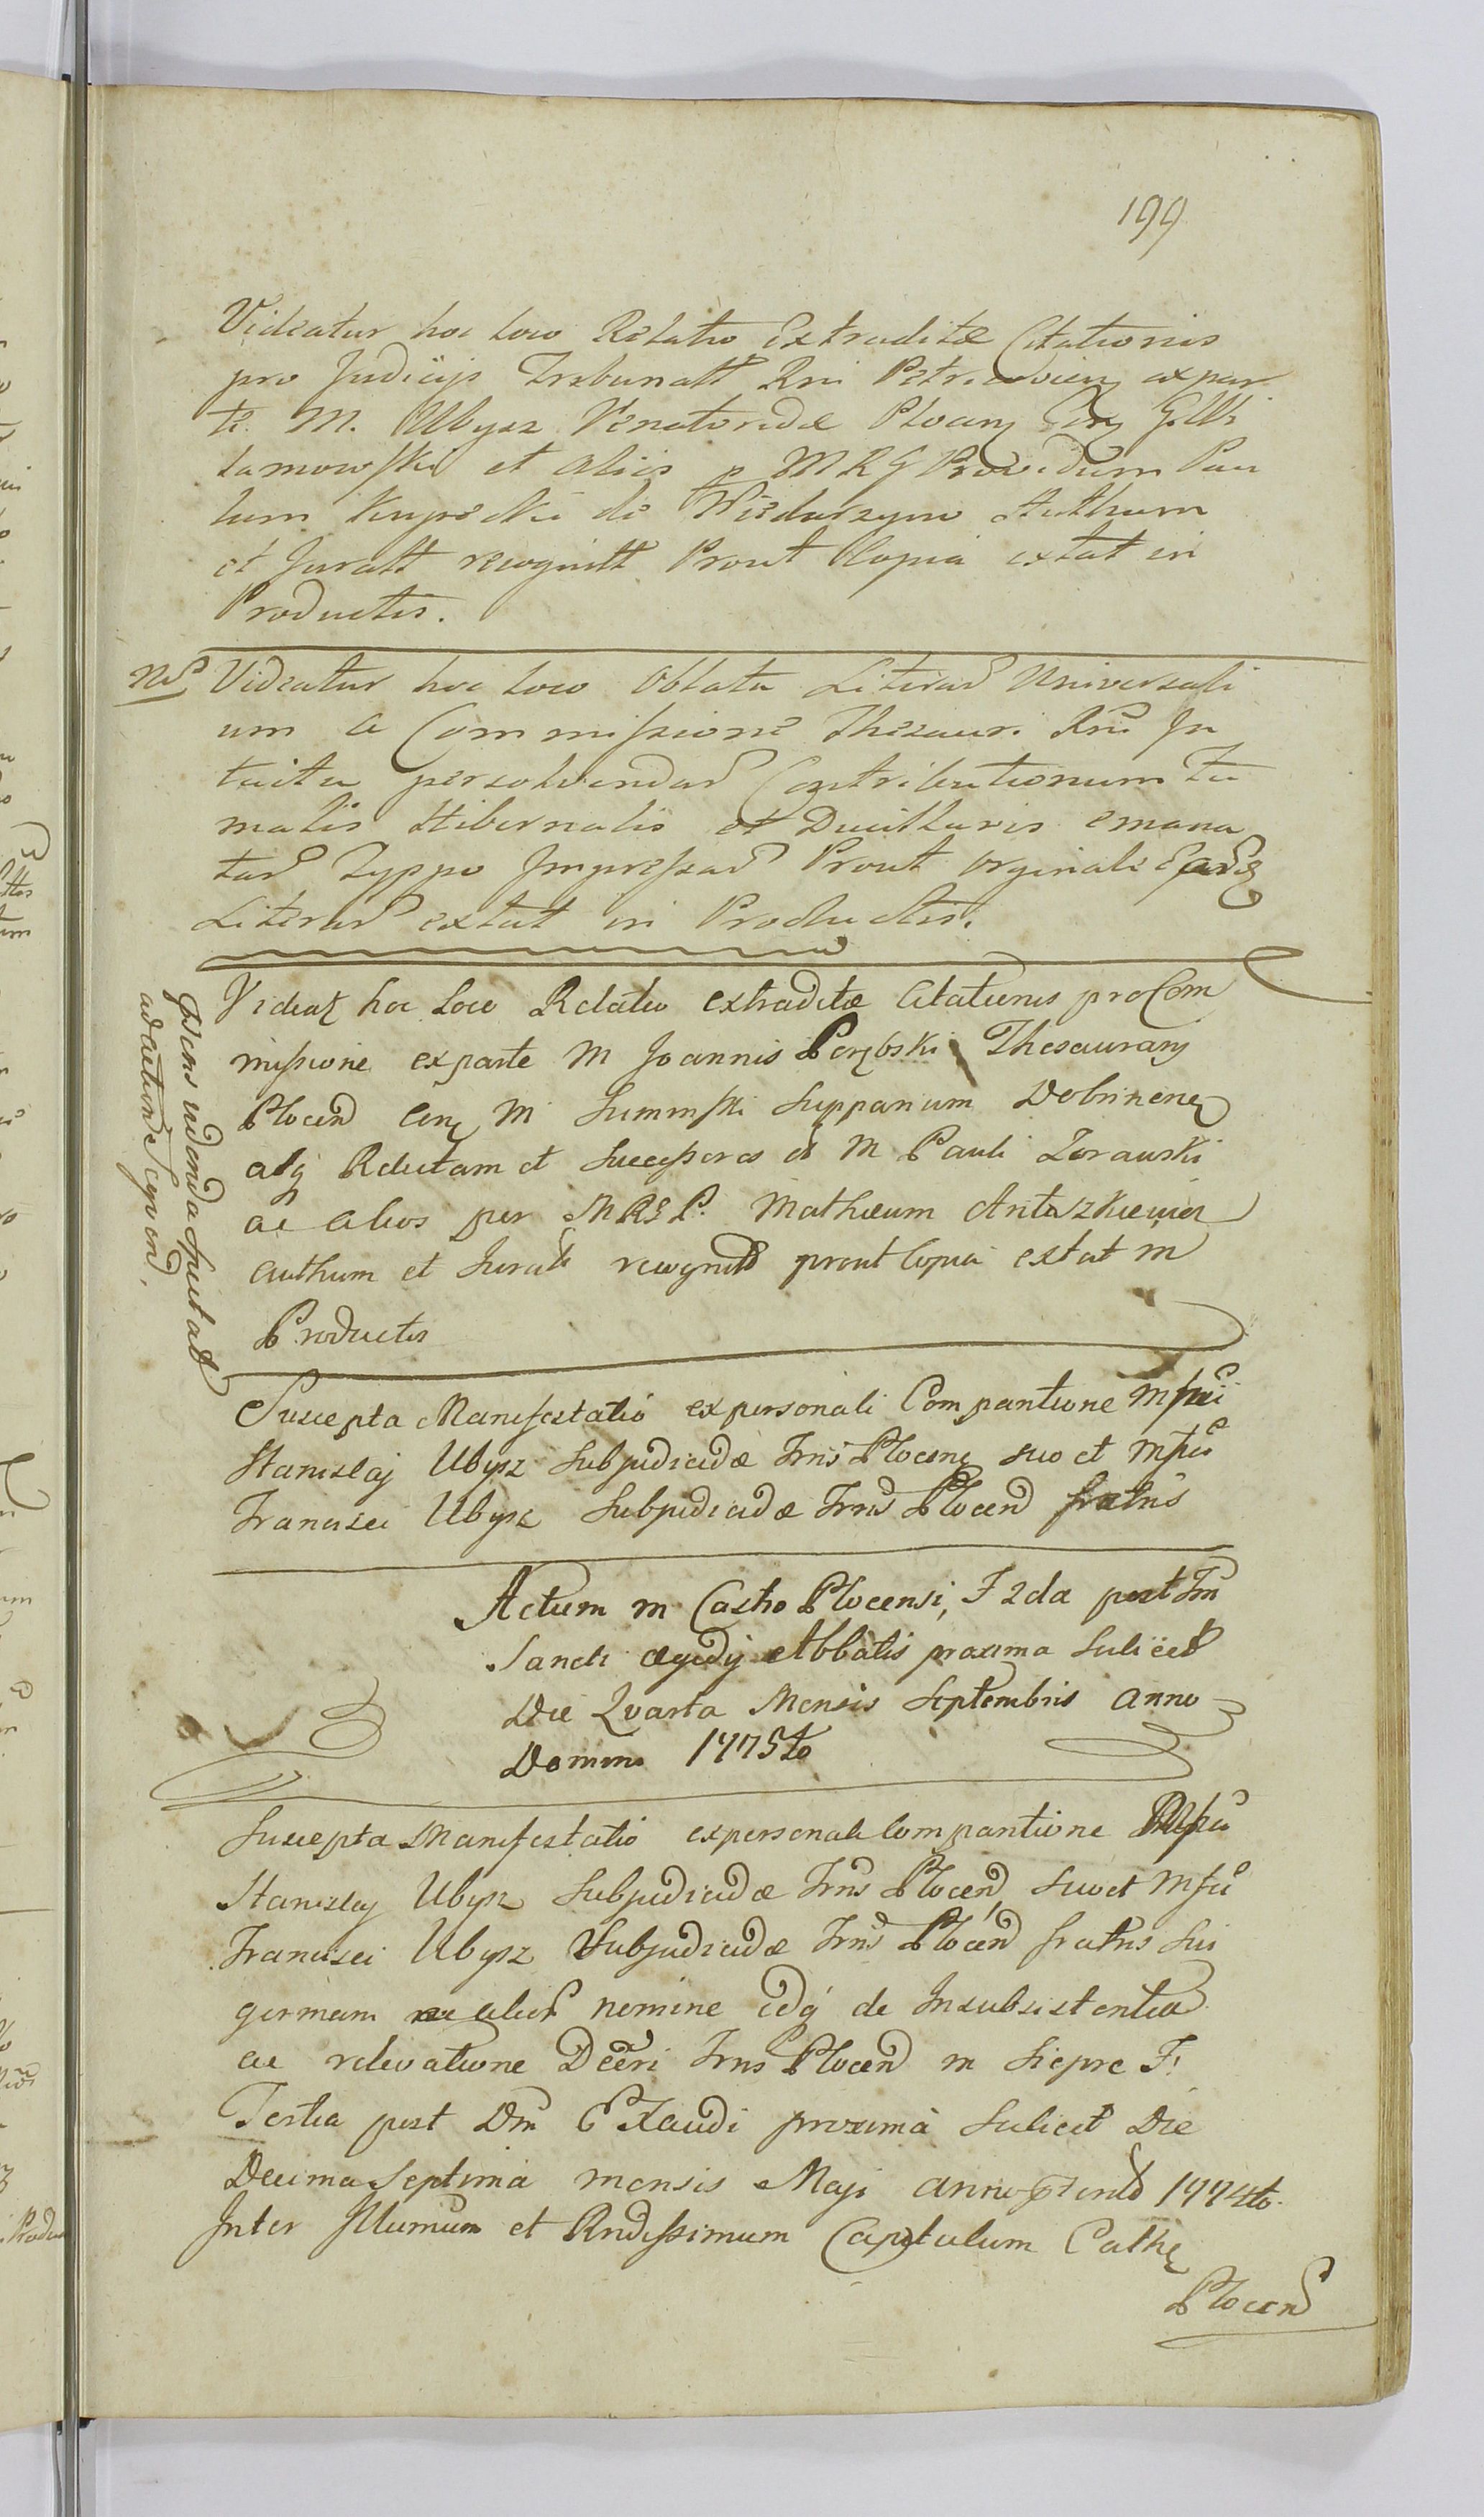 199
Videatur hoc loco Relatio Extraditæ Citationis
pro Judicijs Tribunalt Rni Petricovien ex par
te M. Ubysz Venatoridæ Plocen
lamowski et aliis p MRG Providum Pau
lum Kupecki de Authum
et Juratt recognitt Prout Copia extat in
Productis.
Videatur hoc loco Oblata Literar Universali
um a Commissione Thesauri Rni In
tuitu persolvendar Contributionum Fu
malis Hibernalis et Ducillaris emana
tar Typpo Impressar Prout Orginale Ear
Literar extat in Productis.
Videat hoc Loco Relatio extraditæ Citationis pro Com
missione exparte M Joannis Porębski Thesaurarij
Plocen M Sumiński Suppanum Dobrinen
atq Relictam et Successores M Pauli Zorawski
ac alios per MRG P. Mathæum Antoszkiewicz
authum et Jurat recognit prout Copia extat in
Productis
Suscepta Manifestatio expersonali Compantione Mfci
Stanislaj Ubysz Subjudicidæ Trns Plocen suo et Mfci
Francisci Ubysz Subjudicidæ Trns Plocen fratris
Actum in Castro Plocensi, F 2da post Fm
Sancti Aegidij Abbatis proxima Scilicet
Die Qvarta Mensis Septembris Anno
Domini 1775to
Suscepta Manifestatio expersonali Compantione Mfci
Stanislaj Ubysz Subjudicidæ Trns Plocen, Suo et Mfci
Francisci Ubysz Subjudicidæ Trns Plocen fratris Sui
germani ac alior nomine idq de Insubsistentia
ac relevatione Decri Trns Plocen in Sierpc F.
Tertia post Dm Exaudi proxima Scilicet Die
Decima Septima mensis Maji anno 1774to.
Inter Illumum et Rndissimum Capitulum Cathe
Plocen